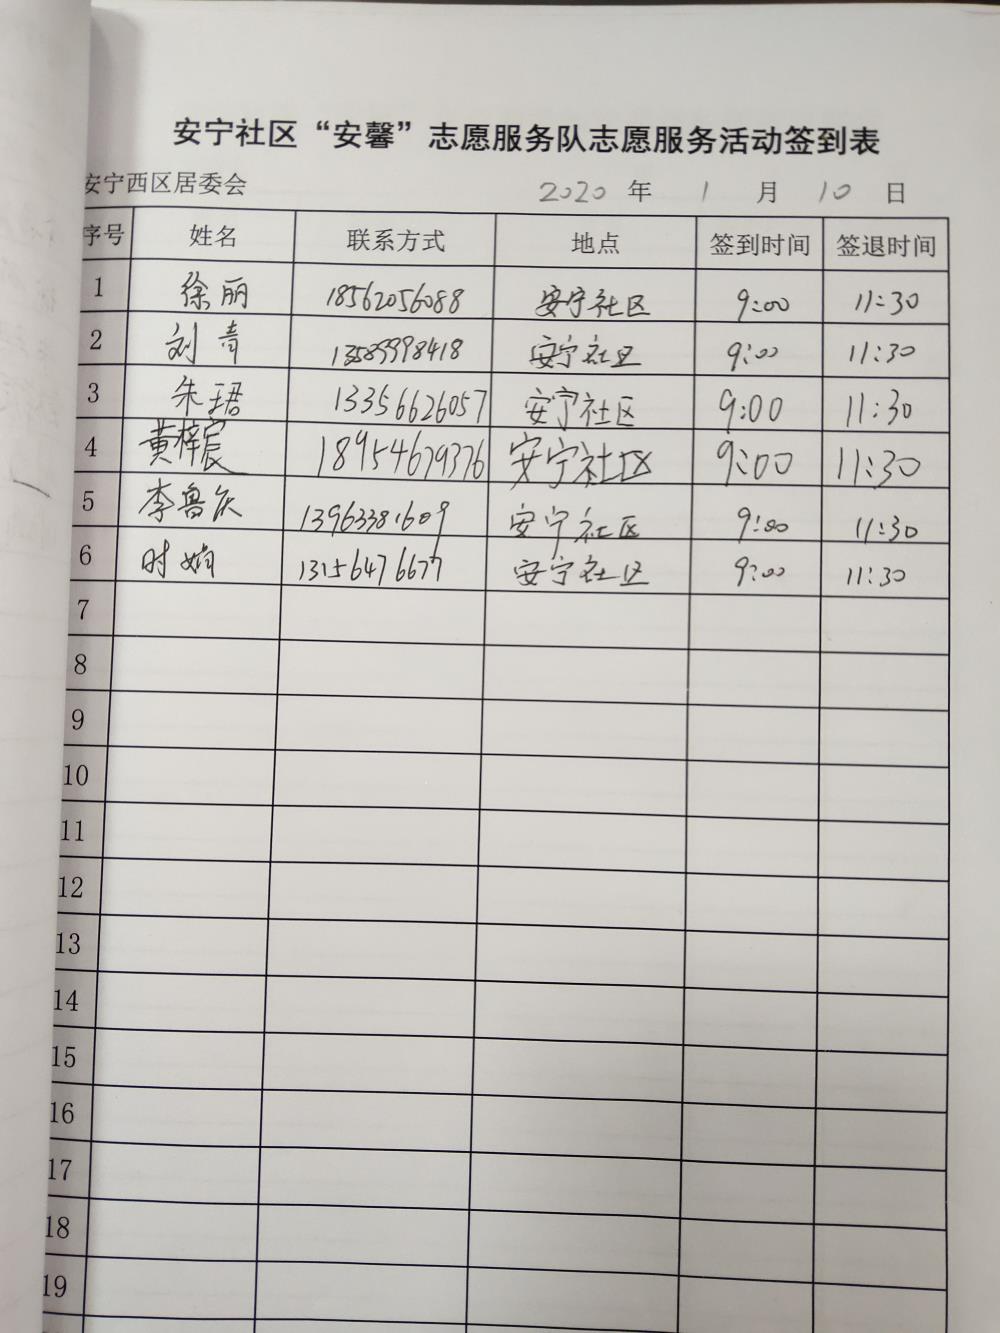 安宁社区“安馨”志愿服务队志愿服务活动签到表
安宁西区居委会 2020 年 1 月 10 日
序号 姓名 联系方式 地点 签到时间 签退时间
1 徐丽 18562056088 安宁社区 9:00 11:30
2 刘青 安宁社区 9:00 11:30
3 朱珺 13356626057 安宁社区 9:00 11:30
4 黄梓宸 18954679376 安宁社区 9:00 11:30
5 李鲁庆 13963381609 安宁社区 9:00 11:30
6 时娟 13156476677 安宁社区 9:00 11:30
7
8
9
10
11
12
13
14
15
16
17
18
19